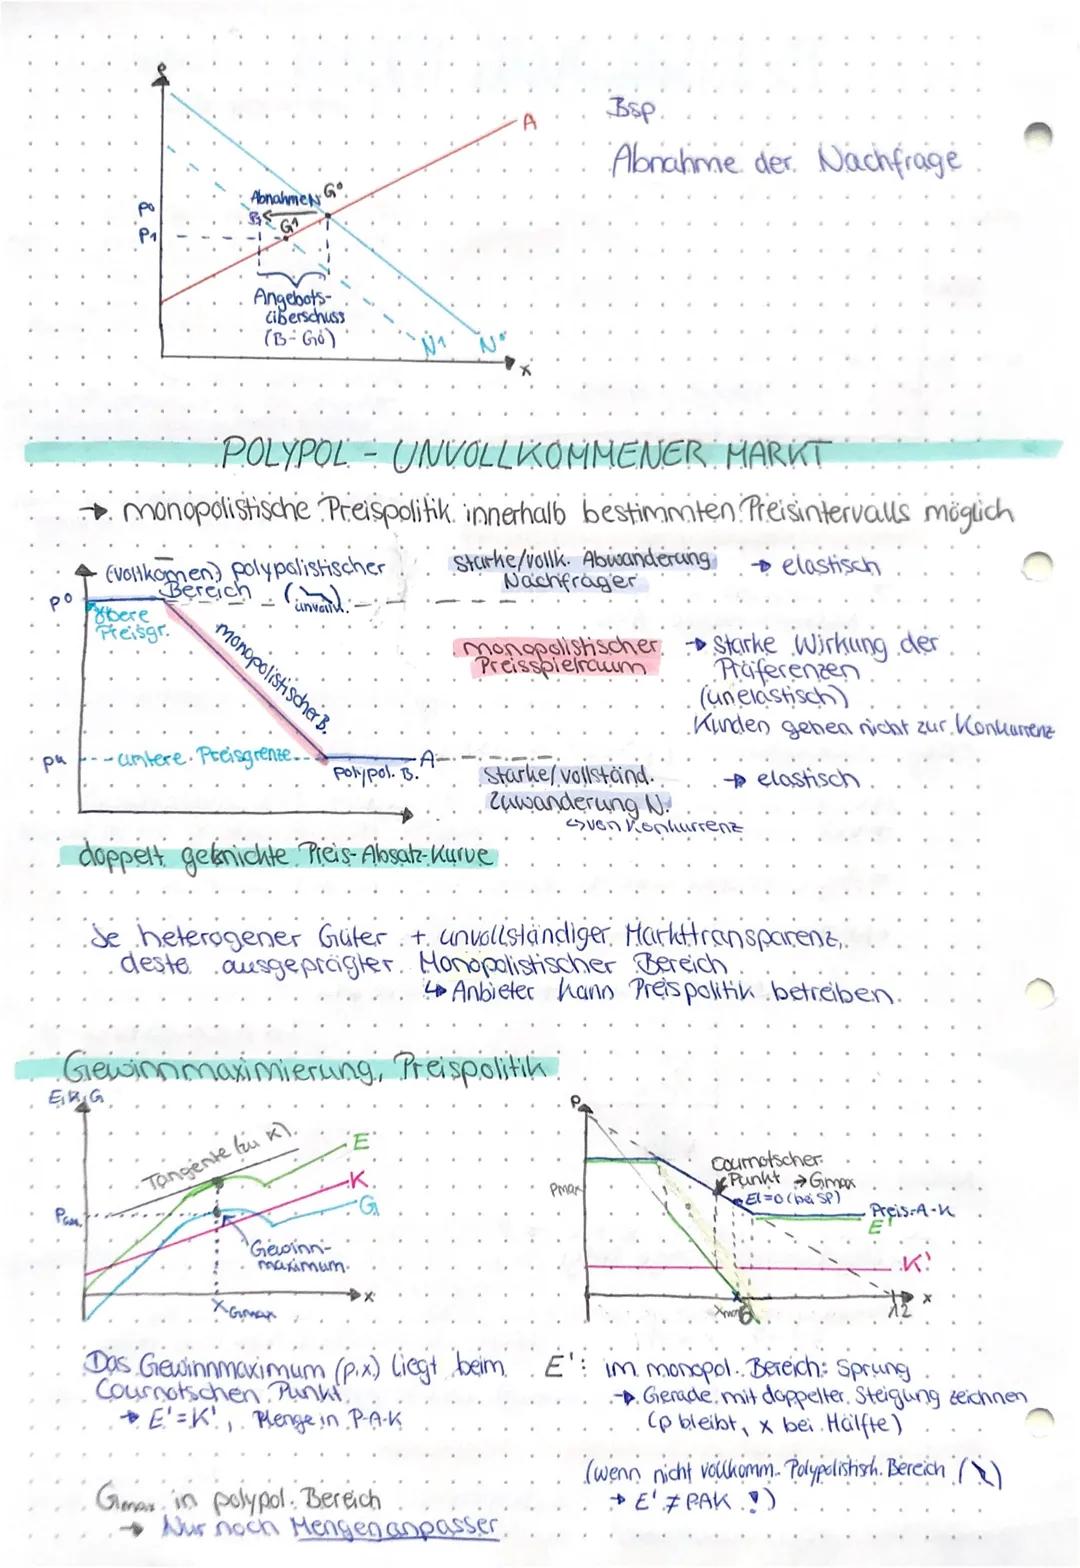 Bsp.
Abnahme der Nachfrage
P
A
Abnahme N
G⁰
P0
B
G1
P1
Angebots-
überschuss
(B-G0)
N1
N⁰
x
POLYPOL - UNVOLLKOMMENER MARKT
→ monopolistische Preispolitik innerhalb bestimmten Preisintervalls möglich
(vollkomen) polypolistischer
Bereich
unvoll.
starke/vollk. Abwanderung
Nachfrager
→ elastisch
p⁰
obere
Preisgr.
monopolistischer B.
monopolistischer
Preisspielraum
→ starke Wirkung der
Präferenzen
(unelastisch)
Kunden gehen nicht zur Konkurrenz
pu
untere Preisgrenze
A
polypol. B.
Starke/vollständ.
Zuwanderung N.
↳ von Konkurrenz
→ elastisch
doppelt geknichte Preis-Absatz-Kurve
Je heterogener Güter + unvollständiger Markttransparenz,
desto ausgeprägter Monopolistischer Bereich
↳ Anbieter kann Preispolitik betreiben.
Gewinnmaximierung, Preispolitik
E,K,G
Tangente (zu K)
E
K
G
Gewinn-
maximum
x
XGmax
P
Cournotscher
Punkt → Gmax
Pmax
El=0 (bei SP)
Preis-A-K
E'
K'
6
12
x
Das Gewinnmaximum (p,x) liegt beim
Cournotschen Punkt.
→ E'=K', Menge in P-A-K
Gmax in polypol. Bereich
→ Nur noch Mengenanpasser
E': im monopol. Bereich: Sprung
→ Gerade mit doppelter Steigung zeichnen
(p bleibt, x bei Hälfte)
(wenn nicht vollkomm. Polypolistisch. Bereich (\)
→ E' ≠ PAK !)